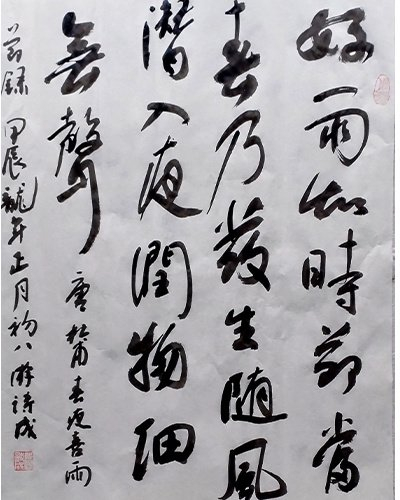 好雨知時節當
春乃發生随風
潛入夜潤物細
無聲
唐杜甫春夜喜雨
節錄 甲辰龍年正月初八游詩成